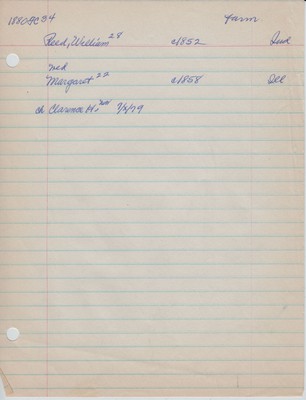 1880GC34 Farm
Reed, William 28 c1852 Ind
ned
Margaret 22 c1858 Ill
ch Clarence H. 7/79